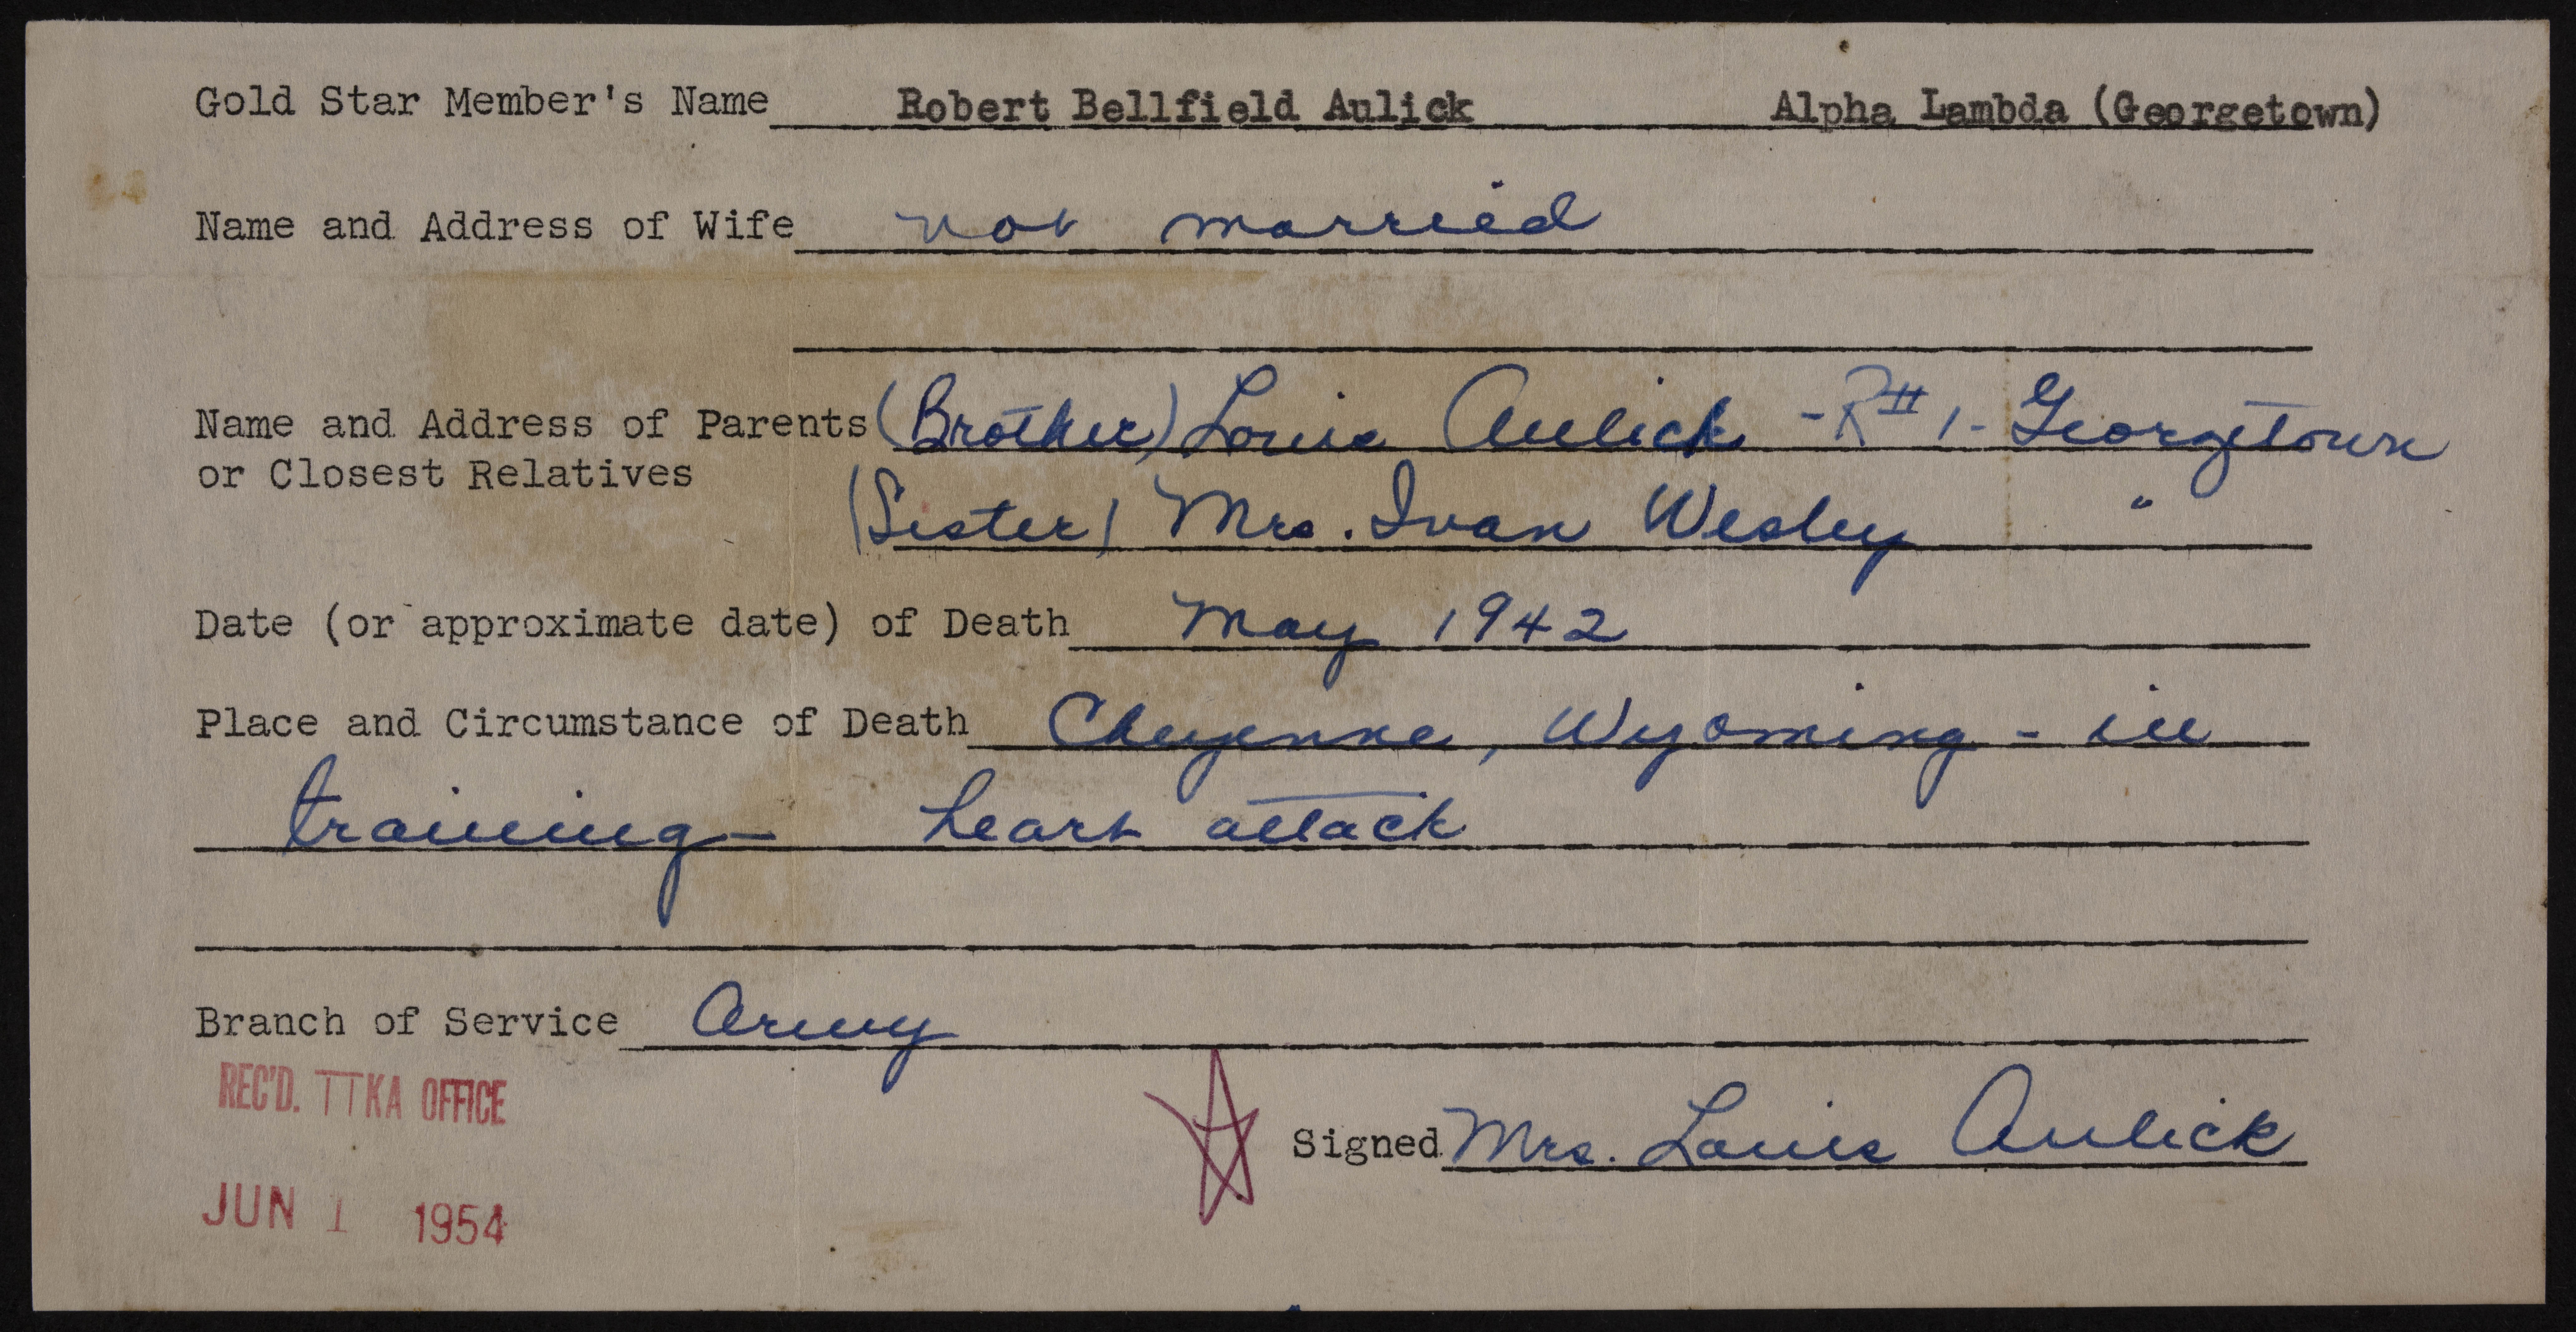 Gold Star Member's Name Robert Bellfield Aulick Alpha Lambda (Georgetown)
Name and Address of Wife not married
Name and Address of Parents (Brother) Louis Aulick - R# 1 - Georgetown
or Closest Relatives
(Sister) Mrs. Ivan Wesley "
Date (or approximate date) of Death May 1942
Place and Circumstance of Death Cheyenne, Wyoming - in
training - heart attack
Branch of Service Army
REC'D. TTKA OFFICE
Signed Mrs. Louis Aulick
JUN 1 1954